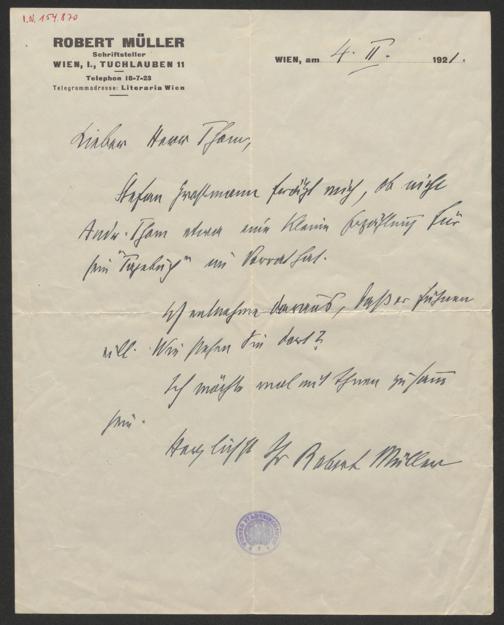 I.N. 154.870
ROBERT MÜLLER
Schriftsteller
WIEN, I., TUCHLAUBEN 11
Telephon 18-7-23
Telegrammadresse: Literaria Wien
WIEN, am 4. II. 1921.
Lieber Herr Thom,
Stefan Großmann frägt mich, ob nicht
Andr. Thom etwa eine kleine Erzählung für
sein "Tagebuch" im Vorrat hat.
Ich entnehme daraus, daß er
will. Wie stehen Sie dort?
Ich möchte mal mit Ihnen zusamm
sein.
Herzlichst Ihr Robert Müller